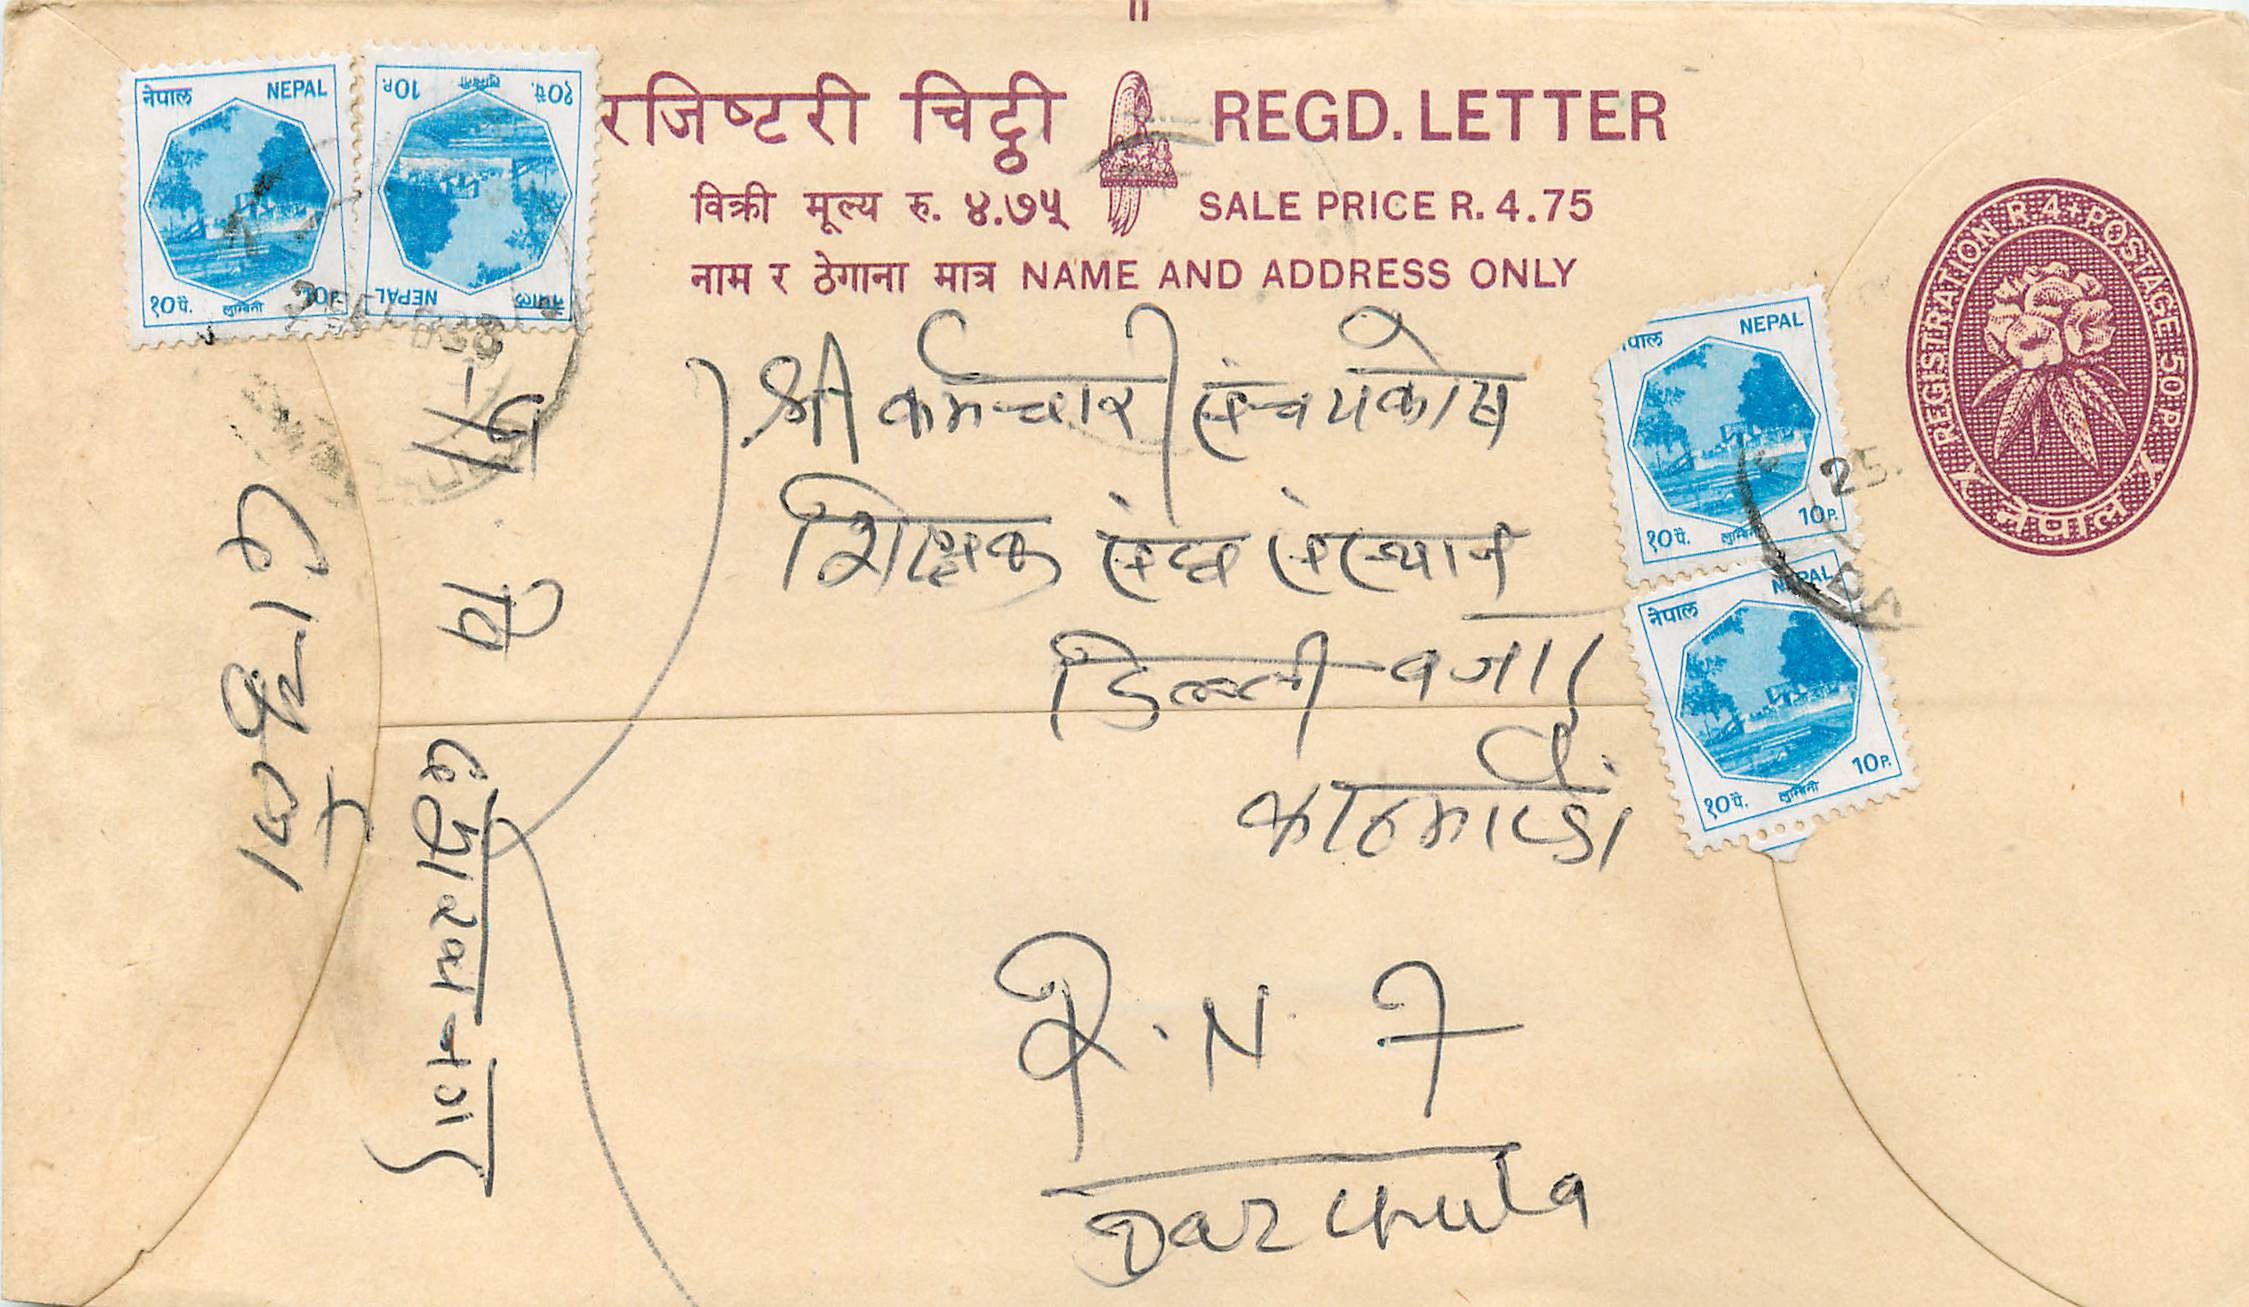 रजिष्टरी चिट्ठी REGD. LETTER
विक्री मूल्य रु. ४.७५ SALE PRICE R. 4.75
नाम र ठेगाना मात्र NAME AND ADDRESS ONLY
नेपाल NEPAL
१०पै. लुम्बिनी 10P.
नेपाल NEPAL
१०पै. लुम्बिनी 10P.
पाल NEPAL
१०पै. लुम्बिनी 10P.
नेपाल NEPAL
१०पै. लुम्बिनी 10P.
REGISTRATION R.4+POSTAGE 50P.
नेपाल
25
श्री कर्मचारी संचयकोष
शिक्षक संघ संस्थान
डिल्ली बजार
काठमाण्डौं
R.N. 7
Darchula
प्रा वि
दार्चुला